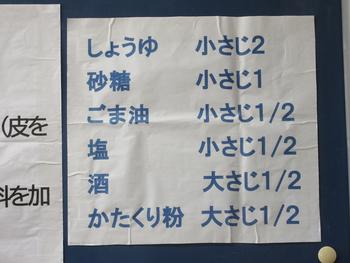 (皮を
料を加
しょうゆ 小さじ2
砂糖 小さじ1
ごま油 小さじ1/2
塩 小さじ1/2
酒 大さじ1/2
かたくり粉 大さじ1/2